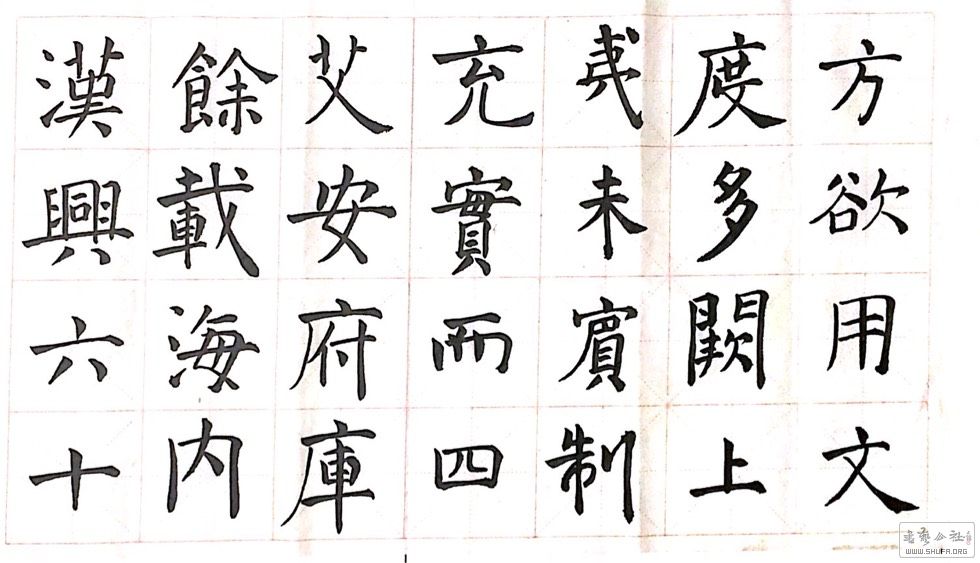 漢興六十
餘載海内
艾安府庫
充實而四
夷未賓制
度多闕上
方欲用文
WWW.SHUFA.ORG